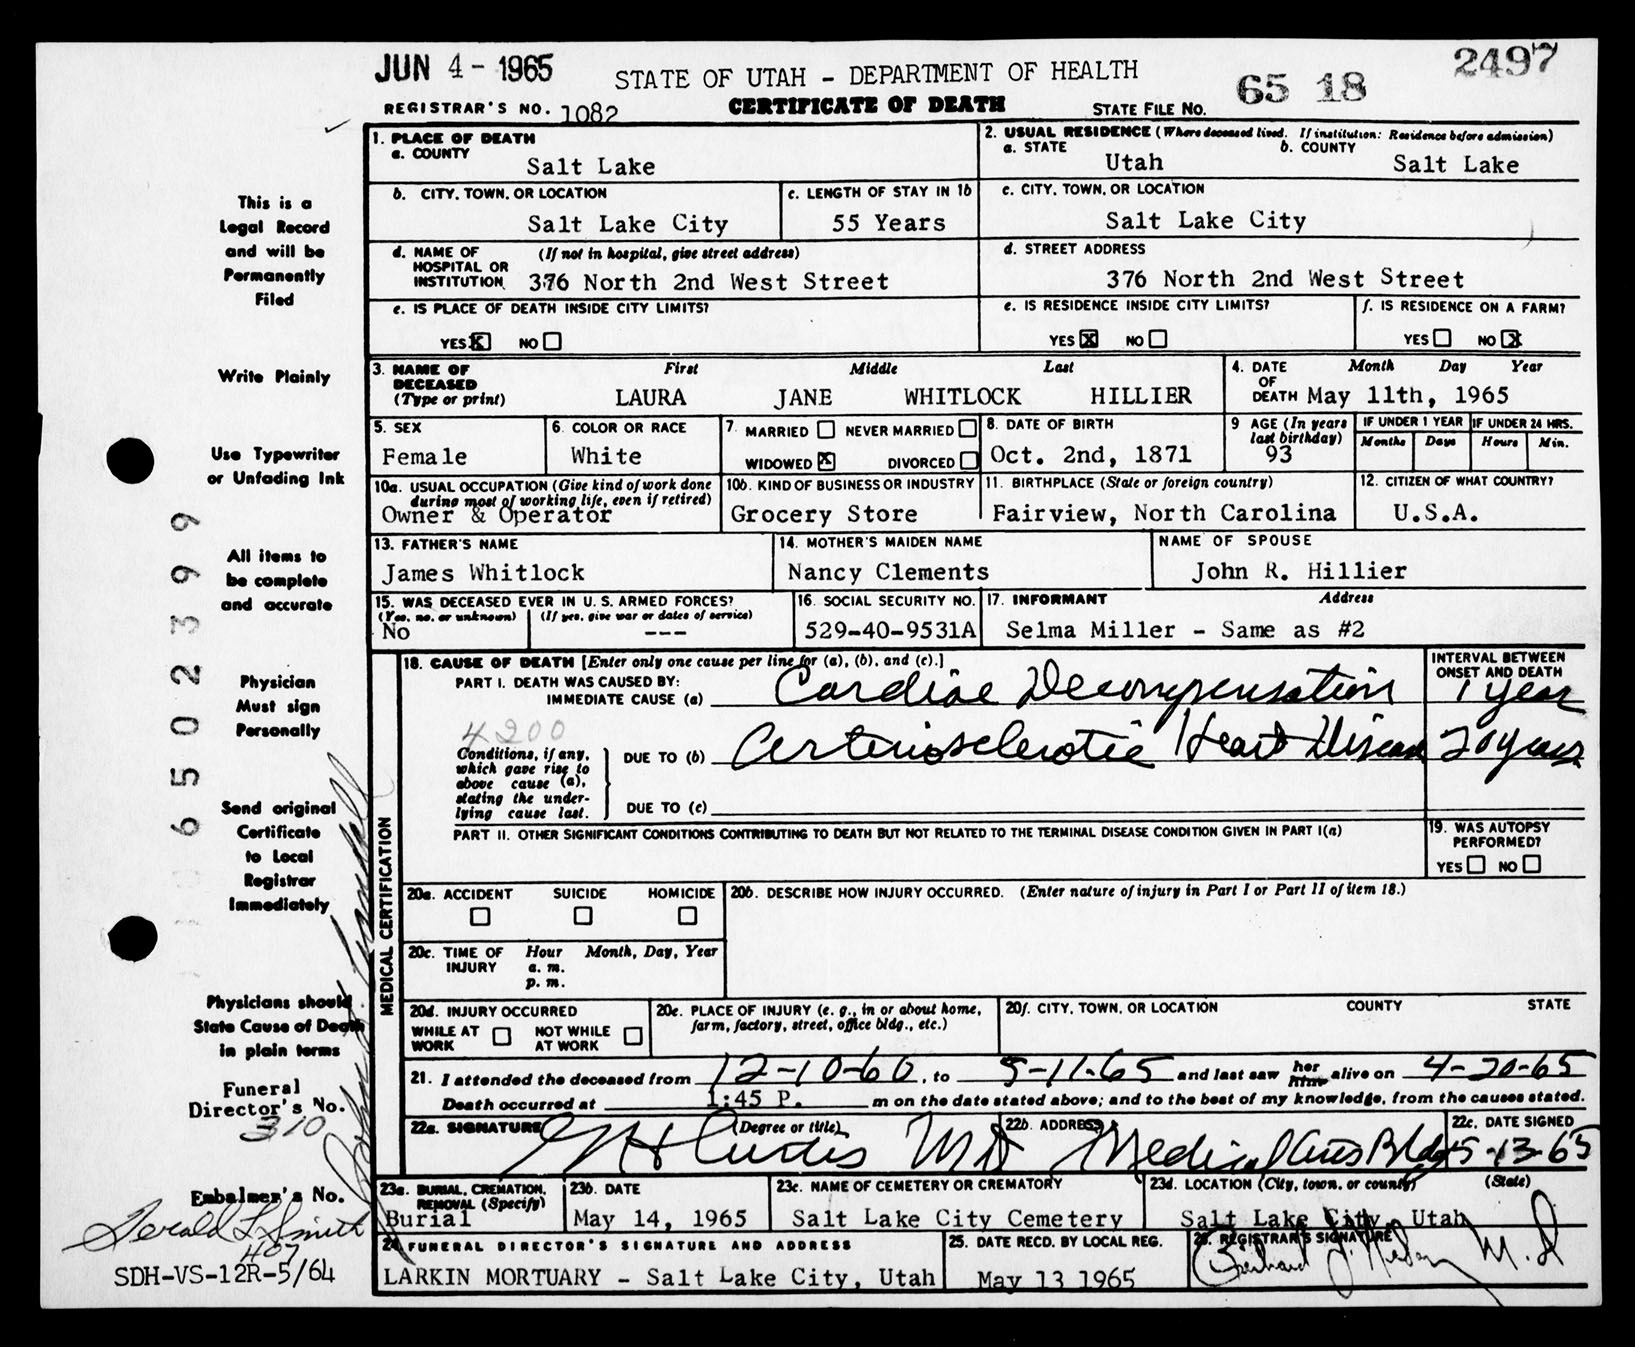 JUN 4 - 1965
STATE OF UTAH - DEPARTMENT OF HEALTH
2497
REGISTRAR'S NO. 1082
CERTIFICATE OF DEATH
STATE FILE NO. 65 18
1. PLACE OF DEATH
a. COUNTY
Salt Lake
2. USUAL RESIDENCE (Where deceased lived. If institution: Residence before admission)
a. STATE
Utah
b. COUNTY
Salt Lake
b. CITY, TOWN, OR LOCATION
Salt Lake City
c. LENGTH OF STAY IN 1b
55 Years
c. CITY, TOWN, OR LOCATION
Salt Lake City
d. NAME OF HOSPITAL OR INSTITUTION (If not in hospital, give street address)
376 North 2nd West Street
d. STREET ADDRESS
376 North 2nd West Street
e. IS PLACE OF DEATH INSIDE CITY LIMITS?
YES X NO
e. IS RESIDENCE INSIDE CITY LIMITS?
YES X NO
f. IS RESIDENCE ON A FARM?
YES NO X
3. NAME OF DECEASED (Type or print)
First Middle Last
LAURA JANE WHITLOCK HILLIER
4. DATE OF DEATH Month Day Year
May 11th, 1965
5. SEX
Female
6. COLOR OR RACE
White
7. MARRIED NEVER MARRIED
WIDOWED X DIVORCED
8. DATE OF BIRTH
Oct. 2nd, 1871
9 AGE (In years last birthday)
93
IF UNDER 1 YEAR
Months Days
IF UNDER 24 HRS.
Hours Min.
10a. USUAL OCCUPATION (Give kind of work done during most of working life, even if retired)
Owner & Operator
10b. KIND OF BUSINESS OR INDUSTRY
Grocery Store
11. BIRTHPLACE (State or foreign country)
Fairview, North Carolina
12. CITIZEN OF WHAT COUNTRY?
U.S.A.
13. FATHER'S NAME
James Whitlock
14. MOTHER'S MAIDEN NAME
Nancy Clements
NAME OF SPOUSE
John R. Hillier
15. WAS DECEASED EVER IN U.S. ARMED FORCES?
(Yes, no, or unknown) (If yes, give war or dates of service)
No ---
16. SOCIAL SECURITY NO.
529-40-9531A
17. INFORMANT Address
Selma Miller - Same as #2
MEDICAL CERTIFICATION
18. CAUSE OF DEATH [Enter only one cause per line for (a), (b), and (c).]
INTERVAL BETWEEN ONSET AND DEATH
PART I. DEATH WAS CAUSED BY:
IMMEDIATE CAUSE (a) Cardiac Decompensation 1 year
4200
Conditions, if any, which gave rise to above cause (a), stating the underlying cause last.
DUE TO (b) Arteriosclerotic Heart Disease 20 years
DUE TO (c)
PART II. OTHER SIGNIFICANT CONDITIONS CONTRIBUTING TO DEATH BUT NOT RELATED TO THE TERMINAL DISEASE CONDITION GIVEN IN PART I(a)
19. WAS AUTOPSY PERFORMED?
YES NO
20a. ACCIDENT SUICIDE HOMICIDE
20b. DESCRIBE HOW INJURY OCCURRED. (Enter nature of injury in Part I or Part II of item 18.)
20c. TIME OF INJURY Hour Month, Day, Year
a. m.
p. m.
20d. INJURY OCCURRED
WHILE AT WORK NOT WHILE AT WORK
20e. PLACE OF INJURY (e. g., in or about home, farm, factory, street, office bldg., etc.)
20f. CITY, TOWN, OR LOCATION COUNTY STATE
21. I attended the deceased from 12-10-60, to 5-11-65 and last saw her him alive on 4-20-65
Death occurred at 1:45 P. m on the date stated above; and to the best of my knowledge, from the causes stated.
22a. SIGNATURE (Degree or title)
Curtis MD
22b. ADDRESS
Medical Arts Bldg
22c. DATE SIGNED
5-13-65
23a. BURIAL, CREMATION, REMOVAL (Specify)
Burial
23b. DATE
May 14, 1965
23c. NAME OF CEMETERY OR CREMATORY
Salt Lake City Cemetery
23d. LOCATION (City, town, or county) (State)
Salt Lake City, Utah
24. FUNERAL DIRECTOR'S SIGNATURE AND ADDRESS
LARKIN MORTUARY - Salt Lake City, Utah
25. DATE RECD. BY LOCAL REG.
May 13 1965
26. REGISTRAR'S SIGNATURE
M.D
This is a
Legal Record
and will be
Permanently
Filed
Write Plainly
Use Typewriter
or Unfading Ink
All items to
be complete
and accurate
Physician
Must sign
Personally
Send original
Certificate
to Local
Registrar
Immediately
Physicians should
State Cause of Death
in plain terms
Funeral
Director's No.
310
Embalmer's No.
Gerald L Smith
407
SDH-VS-12R-5/64
6502399